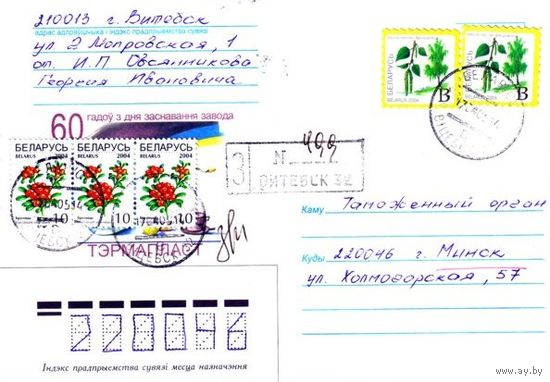 210013 г. Витебск
адрас адпраўшчыка і індэкс прадпрыемства сувязі
ул 2 Мопровская, 1
оп. И.П Овсянникова
Георгия Ивановича
60 гадоў з дня заснавання завода
БЕЛАРУСЬ БЕЛАРУСЬ БЕЛАРУСЬ
BELARUS 2004 BELARUS 2004 BELARUS 2004
10 10 10
ТЭРМАПЛАСТ
БЕЛАРУСЬ БЕЛАРУСЬ
B B
З N 499
ВИТЕБСК 32
Каму Таможенный орган
Куды 220046 г. Минск
ул. Холмогорская, 57
220046
Індэкс прадпрыемства сувязі месца назначэння
www.ay.by